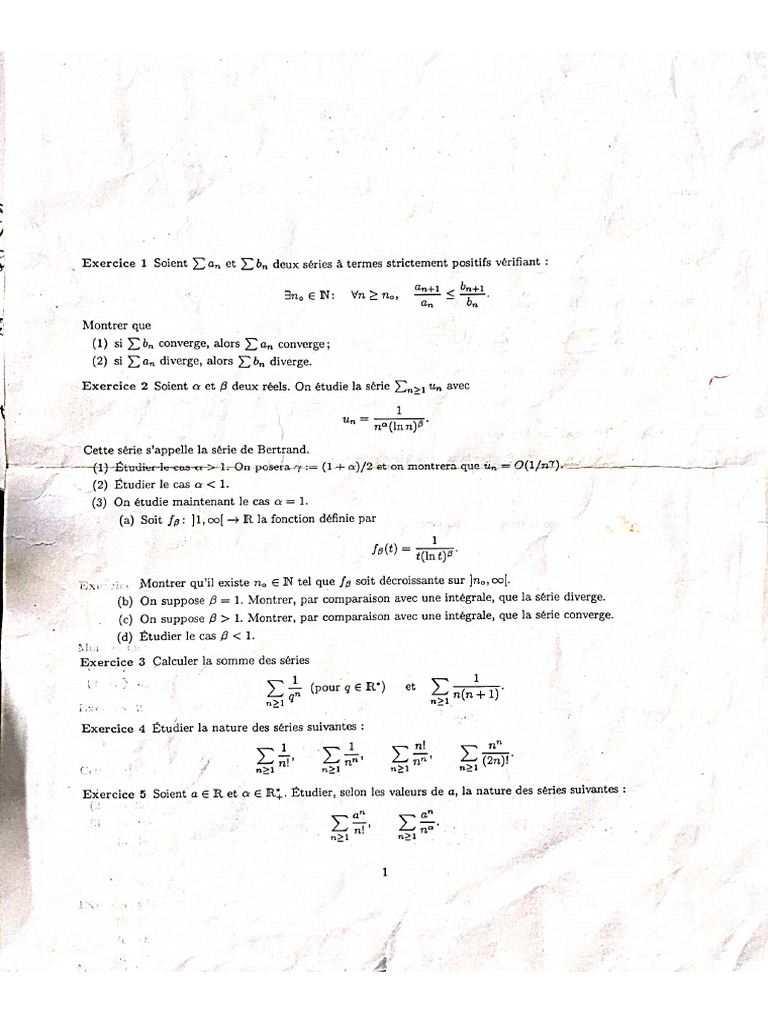 Exercice 1 Soient ∑ aₙ et ∑ bₙ deux séries à termes strictement positifs vérifiant :
∃n₀ ∈ ℕ : ∀n ≥ n₀, aₙ₊₁/aₙ ≤ bₙ₊₁/bₙ.
Montrer que
(1) si ∑ bₙ converge, alors ∑ aₙ converge ;
(2) si ∑ aₙ diverge, alors ∑ bₙ diverge.
Exercice 2 Soient α et β deux réels. On étudie la série ∑ₙ≥₁ uₙ avec
uₙ = 1/(n^α (ln n)^β).
Cette série s'appelle la série de Bertrand.
(1) Étudier le cas α > 1. On posera γ := (1 + α)/2 et on montrera que uₙ = O(1/n^γ).
(2) Étudier le cas α < 1.
(3) On étudie maintenant le cas α = 1.
(a) Soit f_β : ]1, ∞[ → ℝ la fonction définie par
f_β(t) = 1/(t(ln t)^β).
Montrer qu'il existe n₀ ∈ ℕ tel que f_β soit décroissante sur ]n₀, ∞[.
(b) On suppose β = 1. Montrer, par comparaison avec une intégrale, que la série diverge.
(c) On suppose β > 1. Montrer, par comparaison avec une intégrale, que la série converge.
(d) Étudier le cas β < 1.
Exercice 3 Calculer la somme des séries
∑ₙ≥₁ 1/qⁿ (pour q ∈ ℝ*) et ∑ₙ≥₁ 1/(n(n + 1)).
Exercice 4 Étudier la nature des séries suivantes :
∑ₙ≥₁ 1/n!, ∑ₙ≥₁ 1/nⁿ, ∑ₙ≥₁ n!/nⁿ, ∑ₙ≥₁ nⁿ/(2n)!.
Exercice 5 Soient a ∈ ℝ et α ∈ ℝ*₊. Étudier, selon les valeurs de a, la nature des séries suivantes :
∑ₙ≥₁ aⁿ/n!, ∑ₙ≥₁ aⁿ/n^α.
1